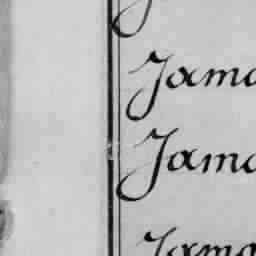 Jama
Jama
Jama